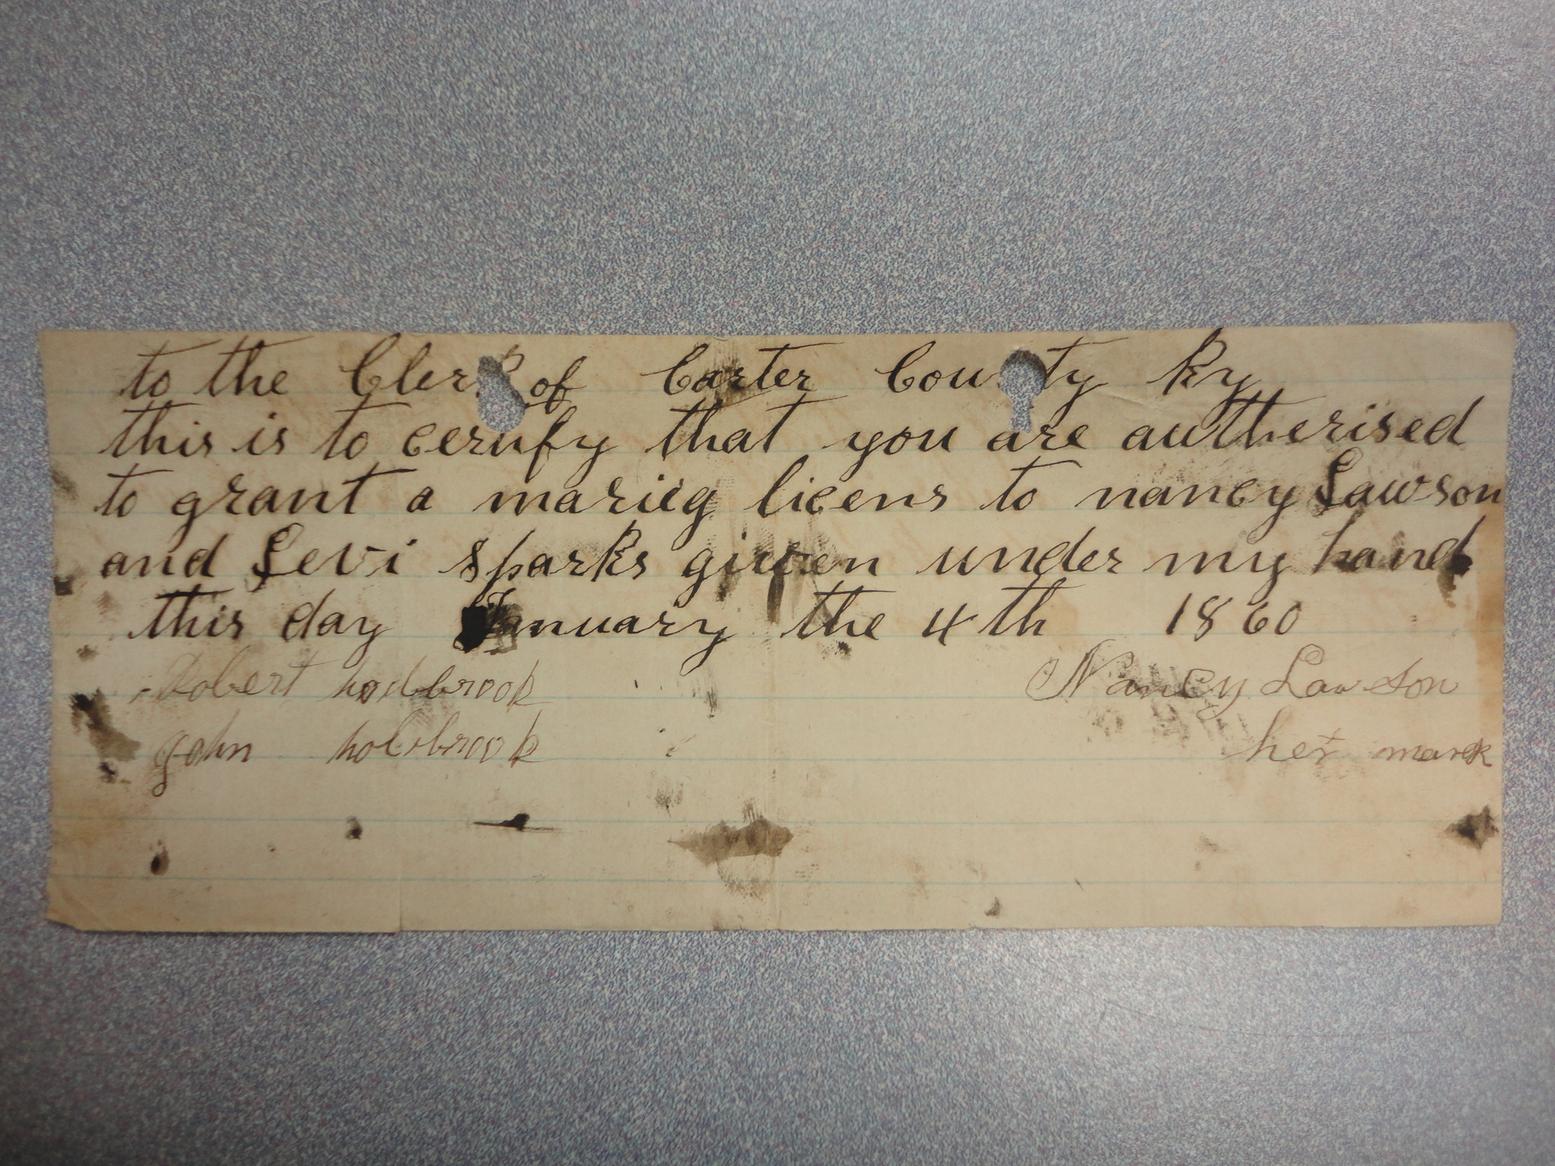 to the Clerk of Carter County Ky
this is to cerufy that you are autherised
to grant a marieg licens to nancy Lawson
and Levi Sparks given under my hand
this day January the 4th 1860
Robert holdbrook Nancy Lawson
John holsbrook her mark